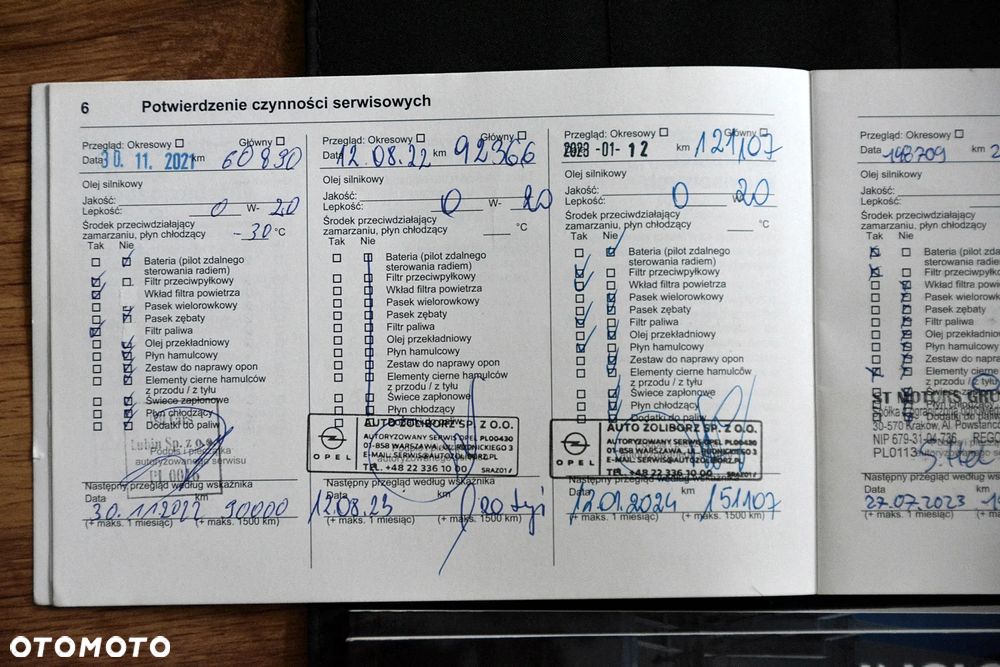 6 Potwierdzenie czynności serwisowych
Przegląd: Okresowy Główny
Data 30. 11. 2021 km 60890
Olej silnikowy
Jakość:
Lepkość: 0 W- 20
Środek przeciwdziałający
zamarzaniu, płyn chłodzący -30 °C
Tak Nie
Bateria (pilot zdalnego
sterowania radiem)
Filtr przeciwpyłkowy
Wkład filtra powietrza
Pasek wielorowkowy
Pasek zębaty
Filtr paliwa
Olej przekładniowy
Płyn hamulcowy
Zestaw do naprawy opon
Elementy cierne hamulców
z przodu / z tyłu
Świece zapłonowe
Płyn chłodzący
Dodatki do paliw
Lubin Sp. z o.o.
Podpis i pieczątka
autoryzowanego serwisu
Następny przegląd według wskaźnika
Data km
30.11.2022 90000
(+ maks. 1 miesiąc) (+ maks. 1500 km)
Przegląd: Okresowy Główny
Data 12.08.22 km 92366
Olej silnikowy
Jakość:
Lepkość: 0 W- 20
Środek przeciwdziałający
zamarzaniu, płyn chłodzący °C
Tak Nie
Bateria (pilot zdalnego
sterowania radiem)
Filtr przeciwpyłkowy
Wkład filtra powietrza
Pasek wielorowkowy
Pasek zębaty
Filtr paliwa
Olej przekładniowy
Płyn hamulcowy
Zestaw do naprawy opon
Elementy cierne hamulców
z przodu / z tyłu
Świece zapłonowe
Płyn chłodzący
OPEL
AUTO ŻOLIBORZ SP. Z O.O.
AUTORYZOWANY SERWIS OPEL PL00430
01-858 WARSZAWA, UL. RUDNICKIEGO 3
E-MAIL. SERWIS@AUTOZOLIBORZ.PL
TEL. +48 22 336 10 00 SRAZ01
Następny przegląd według wskaźnika
Data km
12.08.23
(+ maks. 1 miesiąc) (+ maks. 1500 km)
Przegląd: Okresowy Główny
2023 -01- 12 km 121107
Olej silnikowy
Jakość:
Lepkość: 0 W- 20
Środek przeciwdziałający
zamarzaniu, płyn chłodzący °C
Tak Nie
Bateria (pilot zdalnego
sterowania radiem)
Filtr przeciwpyłkowy
Wkład filtra powietrza
Pasek wielorowkowy
Pasek zębaty
Filtr paliwa
Olej przekładniowy
Płyn hamulcowy
Zestaw do naprawy opon
Elementy cierne hamulców
z przodu / z tyłu
Świece zapłonowe
Płyn chłodzący
Dodatki do paliw
OPEL
AUTO ŻOLIBORZ SP. Z O.O.
AUTORYZOWANY SERWIS OPEL PL00430
01-858 WARSZAWA, UL. RUDNICKIEGO 3
E-MAIL. SERWIS@AUTOZOLIBORZ.PL
TEL. +48 22 336 10 00 SRAZ01
Następny przegląd według wskaźnika
Data km
12.01.2024 151107
(+ maks. 1 miesiąc) (+ maks. 1500 km)
Przegląd: Okresowy
Data 148709 km
Olej silnikowy
Jakość:
Lepkość:
Środek przeciwdziałający
zamarzaniu, płyn chłodzący
Tak Nie
Bateria (pilot
sterowania
Filtr przeciwpy
Wkład filtra po
Pasek wielorow
Pasek zębaty
Filtr paliwa
Olej przekładni
Płyn hamulcow
Zestaw do nap
Elementy ciern
z przodu / z
ST MOTORS GRO
30-570 Kraków, Al. Powstańcó
NIP 679-31
PL0113
Następny przegląd według
Data
27.07.2023
(+ maks. 1 miesiąc)
OTOMOTO